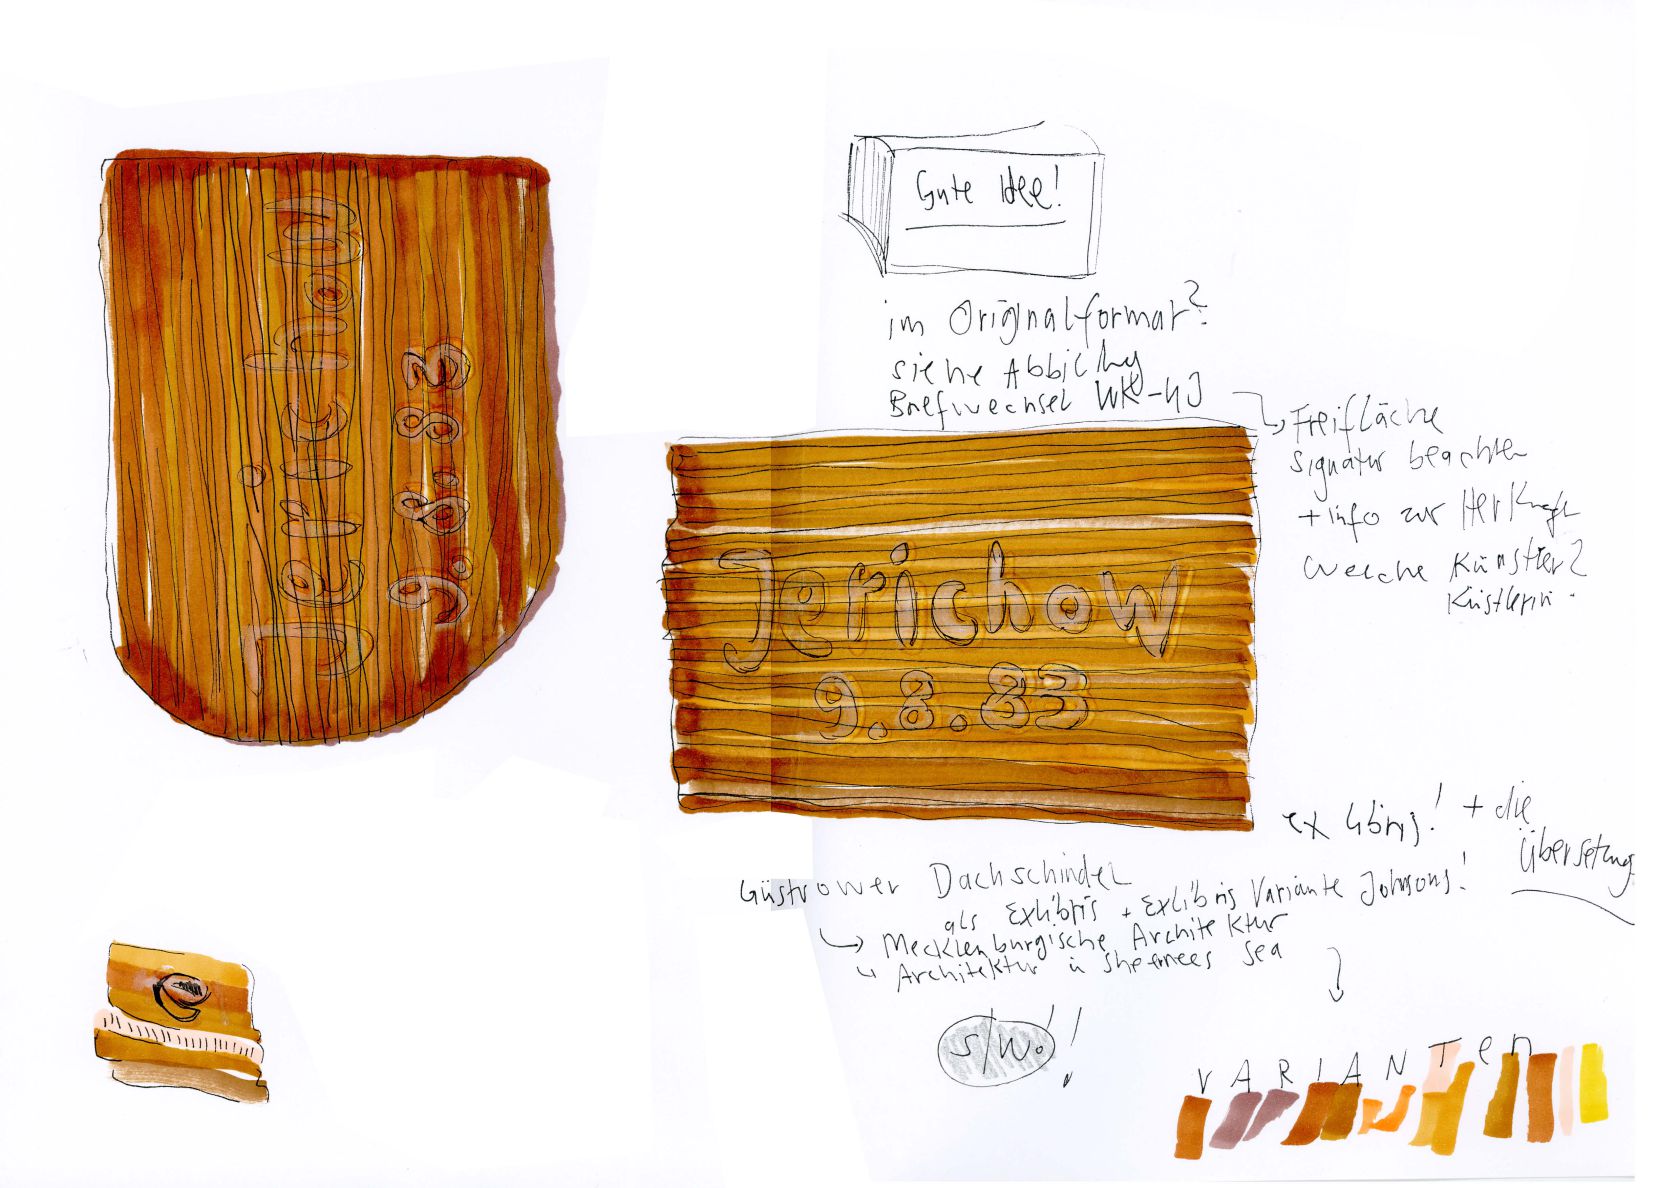 Jerichow
9.8.83
Gute Idee!
im Originalformat?
siehe Abbildung
Briefwechsel WK-UJ
Freifläche
Signatur beachten
+ info zur Herkunft
welche Künstler?
Künstlerin
Jerichow
9.8.83
ex libris! + die
Übersetzung
Güstrower Dachschindel
als Exlibris + Exlibris Variante Johnsons!
Mecklenburgische Architektur
Architektur in Sheerness Sea
s/w!!
VARIANTen
e